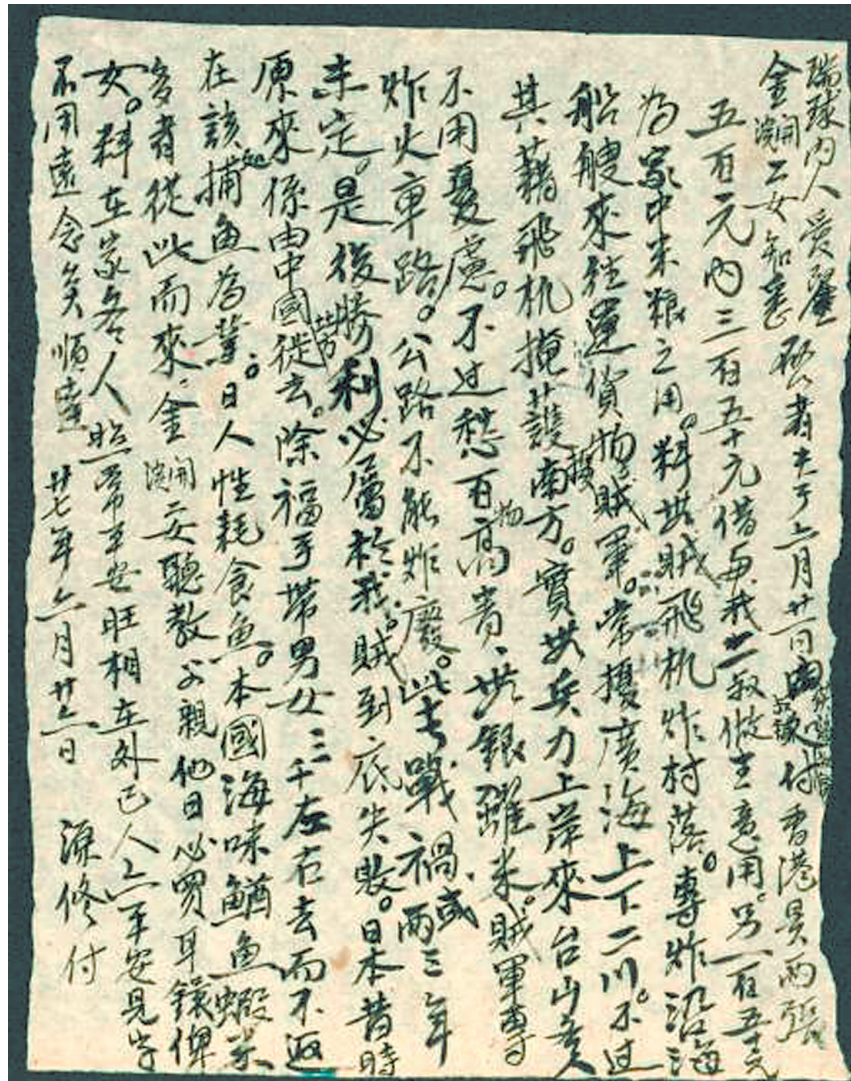 瑞球內人愛鑒
金開濃二女知悉 啓者夫于六月廿一日付香港艮两張
五百元內三百五十元借与我二叔做生意用。另一百五十元
為家中米粮之用。料然賊飛机炸村落。專炸沿海
船艘來往運貨物接賊軍。常擾廣海上下二川。不过
其藉飛机掩護南方。實無兵力上岸來台山吾人
不用憂慮。不过愁百物高貴、無銀雖米。賊軍專
炸火車路。公路不能炸廢。此去戰禍、或两三年
未定。是後勝利必屬於我。賊到底失敗。日本昔時
原來係由中國徙去。除福手帶男女三千左右去而不返
在該知捕魚為業。日人性耗食魚。本國海味鱿魚蝦米
多者從此而來。金開濃二女聽教父親他日必買耳鐶俾
女。料在家各人照常平安旺相在外己人亦平安見字
不用遠念矣順達 廿七年六月廿六日 源修付